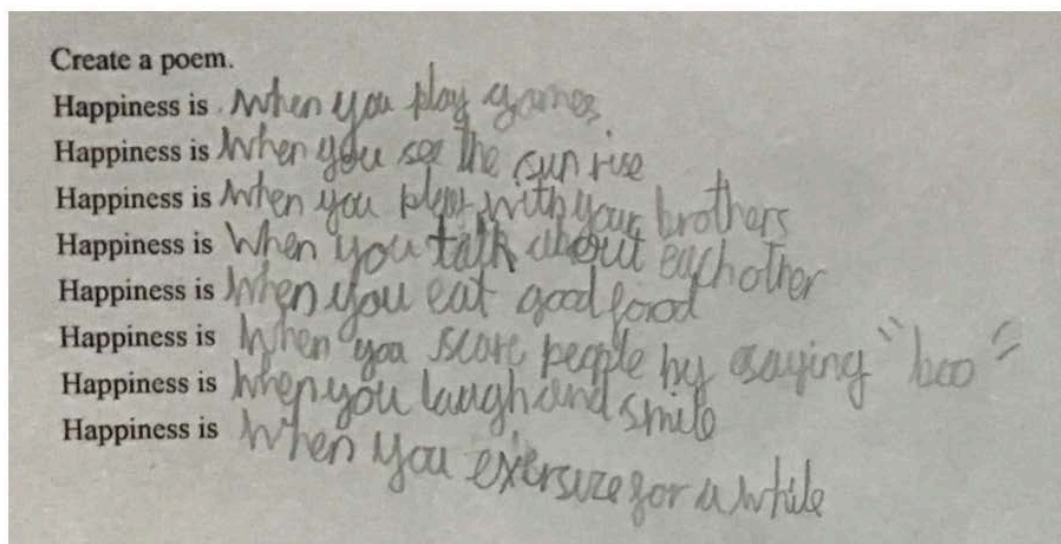 Create a poem.
Happiness is when you play games.
Happiness is When you see the sun rise
Happiness is when you play with your brothers
Happiness is When you talk about each other
Happiness is When you eat good food
Happiness is When you scare people by saying "boo"
Happiness is When you laugh and smile
Happiness is When you exersize for a while